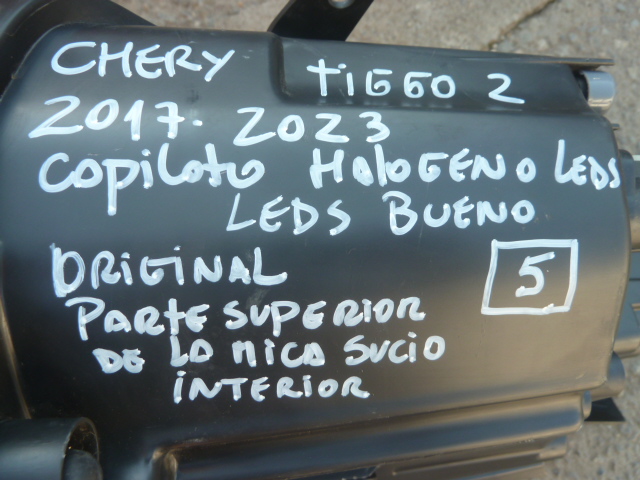 CHERY TIGGO 2
2017. 2023
COPILOTO HALOGENO LEDS
LEDS BUENO
ORIGINAL 5
PARTE SUPERIOR
DE LA MICA SUCIO
INTERIOR